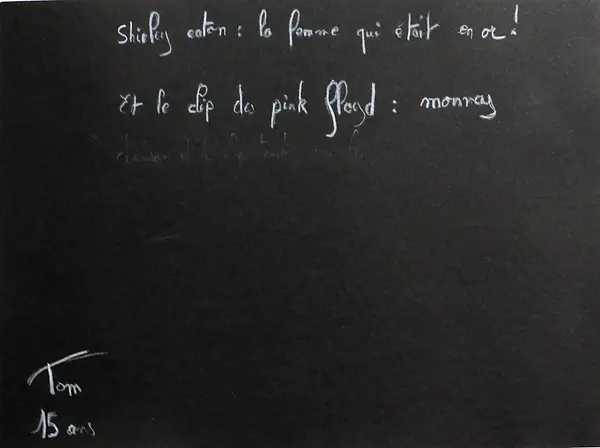 Shirley eaton : la femme qui était en or !
Et le clip des pink ffloyd : monney
Tom
15 ans